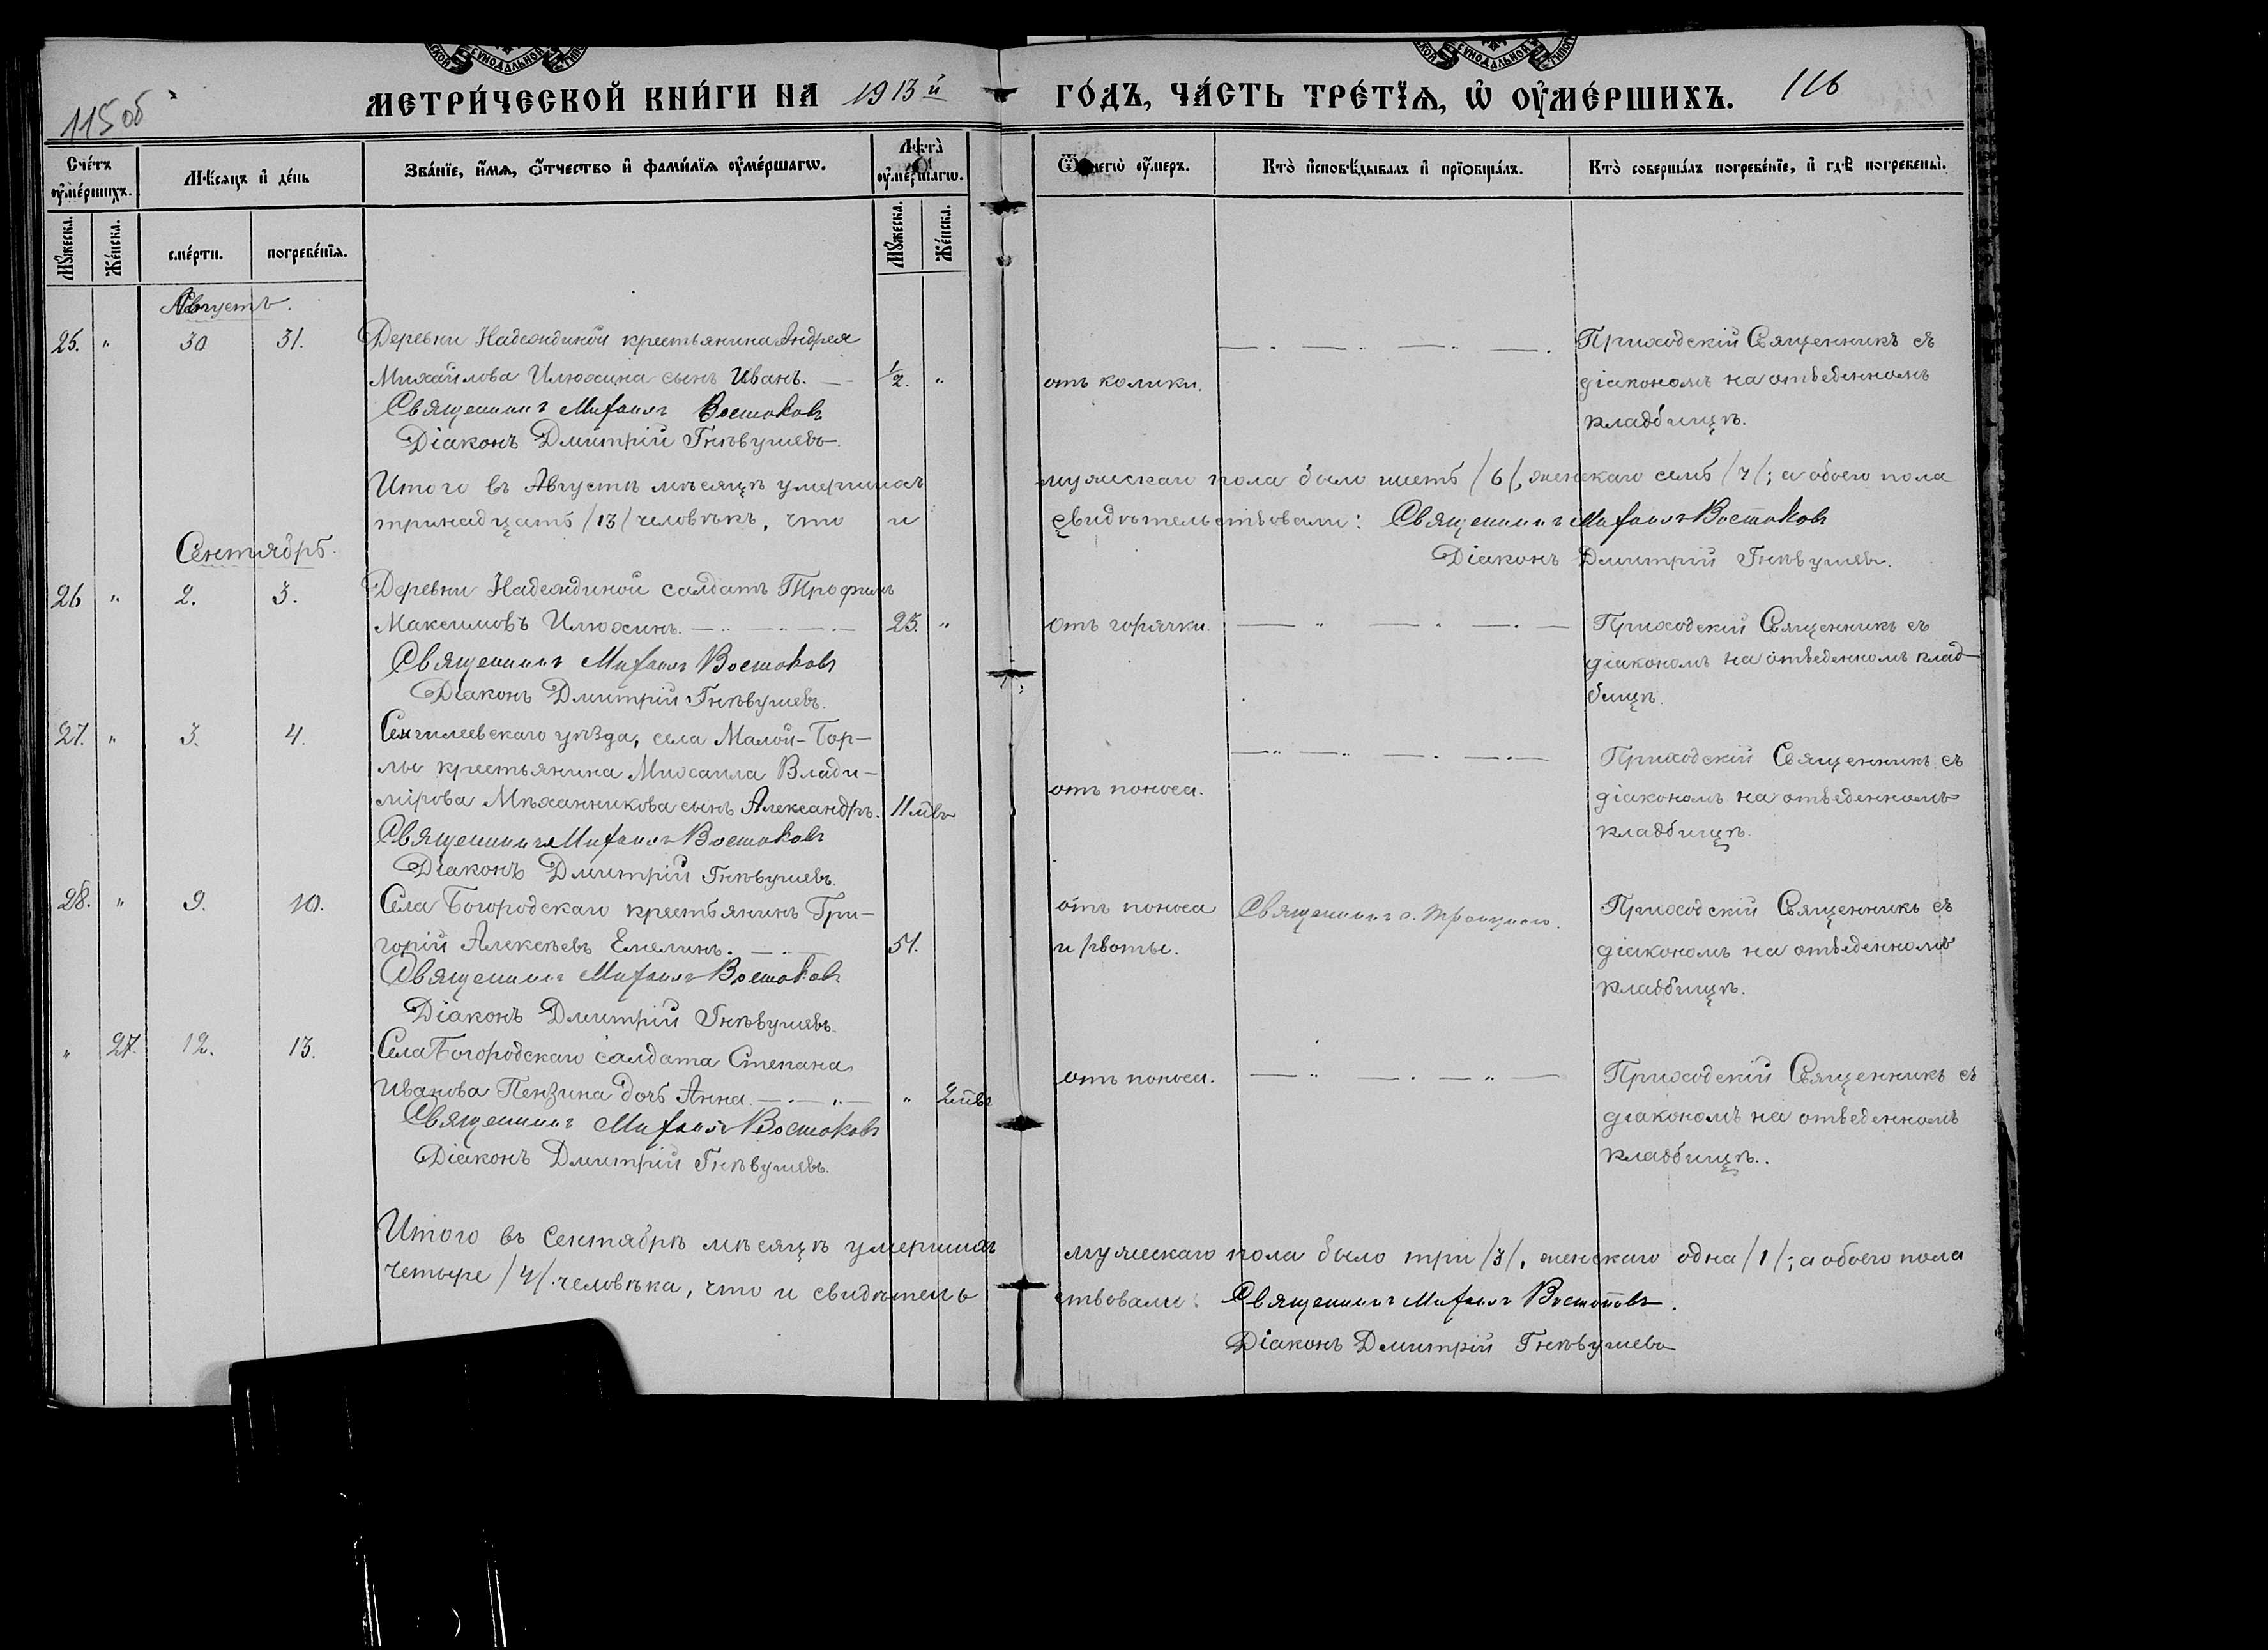 115 об
МЕТРИ́ЧЕСКОЙ КНИ́ГИ НА 1913 й
ГО́ДЪ, ЧА́СТЬ ТРЕ́ТЇѦ, Ѡ҆ ОУ҆МЕ́РШИХЪ.
116
Сче́тъ оу҆ме́ршихъ.
Мѣ́сяцъ и҆ де́нь
Зва́нїе, и҆́мѧ, ѻ҆́тчество и҆ фами́лїѧ оу҆ме́ршагѡ.
Лѣ́та оу҆ме́ршагѡ.
Ѿ чегѡ̀ оу҆́меръ.
Кто̀ и҆сповѣ́дывалъ и҆ прїѻбща́лъ.
Кто̀ соверша́лъ погребе́нїе, и҆ гдѣ̀ погребены̀.
Мꙋ́жеска.
Же́нска.
сме́рти.
погребе́нїѧ.
Мꙋ́жеска.
Же́нска.
Августъ.
25. " 30 31. Деревни Надеждиной крестьянина Андрея
Михайлова Илюхина сынъ Иванъ. — 1/2. "
Священникъ Михаилъ Востоковъ
Діаконъ Дмитрій Гнѣвушевъ.
отъ колики.
Приходскій Священникъ съ
діакономъ на отведенномъ
кладбищѣ.
Итого въ Августѣ мѣсяцѣ умершихъ мужескаго пола было шесть /6/, женскаго семь /7/; а обоего пола
тринадцать /13/ человѣкъ, что и свидѣтельствовали: Священникъ Михаилъ Востоковъ
Діаконъ Дмитрій Гнѣвушевъ.
Сентябрь.
26 " 2. 3. Деревни Надеждиной солдатъ Трофимъ
Максимовъ Илюхинъ. 25. "
Священникъ Михаилъ Востоковъ
Діаконъ Дмитрій Гнѣвушевъ.
отъ горячки.
Приходскій Священникъ съ
діакономъ на отведенномъ клад-
бищѣ.
27. " 3. 4. Сенгилеевскаго уѣзда, села Малой-Бор-
лы крестьянина Михаила Влади-
мірова Мѣханникова сынъ Александръ. 11 мѣв
Священникъ Михаилъ Востоковъ
Діаконъ Дмитрій Гнѣвушевъ.
отъ поноса.
Приходскій Священникъ съ
діакономъ на отведенномъ
кладбищѣ.
28. " 9. 10. Села Богородскаго крестьянинъ Гри-
горій Алексѣевъ Емелинъ. 51.
Священникъ Михаилъ Востоковъ
Діаконъ Дмитрій Гнѣвушевъ.
отъ поноса
и рвоты.
Священникъ с.
Приходскій Священникъ съ
діакономъ на отведенномъ
кладбищѣ.
" 27. 12. 13. Села Богородскаго солдата Степана
Иванова Пензина дочь Анна. "
Священникъ Михаилъ Востоковъ
Діаконъ Дмитрій Гнѣвушевъ.
отъ поноса.
Приходскій Священникъ съ
діакономъ на отведенномъ
кладбищѣ.
Итого въ Сентябрѣ мѣсяцѣ умершихъ мужескаго пола было три /3/, женскаго одна /1/; а обоего пола
четыре /4/ человѣка, что и свидѣтельствовали: Священникъ Михаилъ Востоковъ.
Діаконъ Дмитрій Гнѣвушевъ